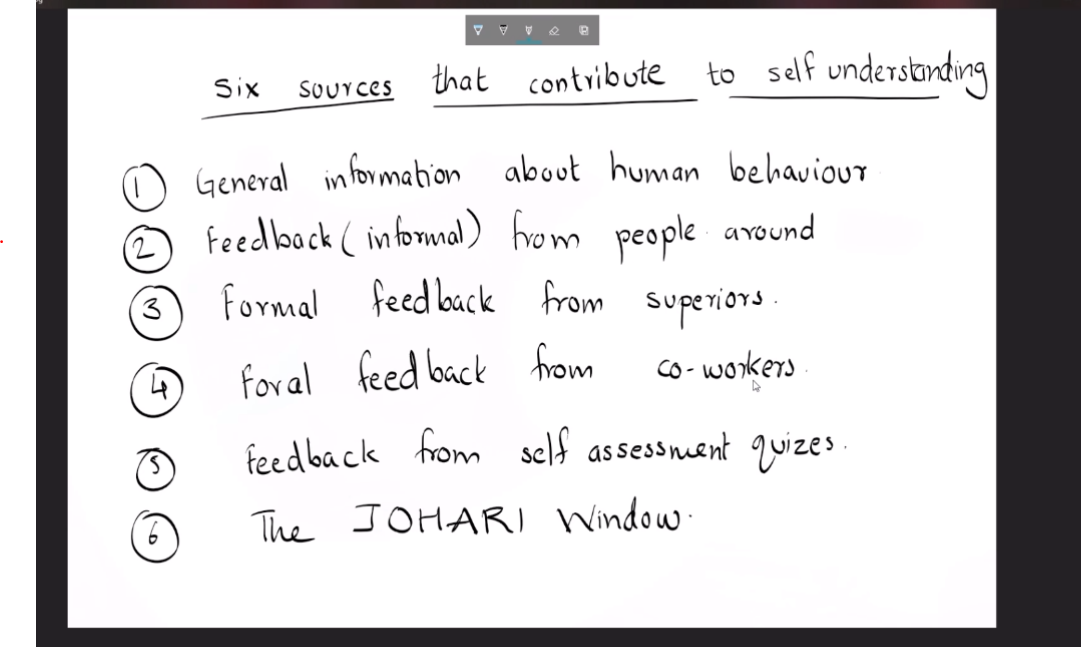 Six sources that contribute to self understanding
1 General information about human behaviour
2 Feedback (informal) from people around
3 Formal feedback from superiors.
4 Foral feedback from co-workers.
5 Feedback from self assessment quizes.
6 The JOHARI Window.